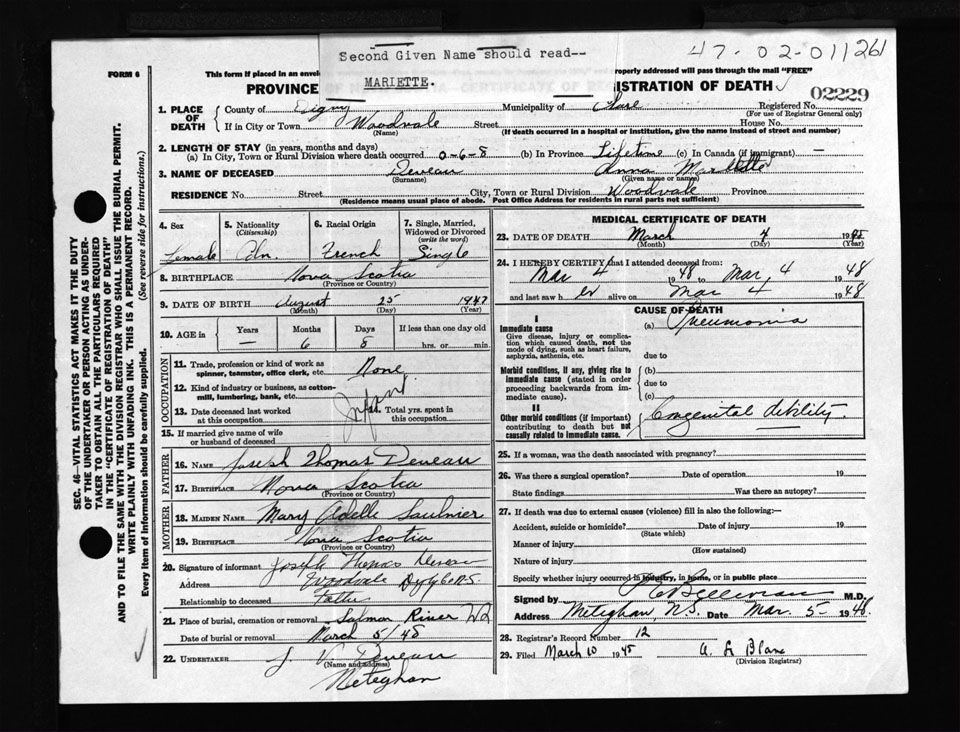 Second Given Name should read--
MARIETTE.
47-02-011261
FORM 6
This form if placed in an envel
roperly addressed will pass through the mail "FREE"
PROVINCE
ISTRATION OF DEATH
02229
1. PLACE OF DEATH
County of Digby
Municipality of Clare
Registered No.
(For use of Registrar General only)
If in City or Town Woodvale Street House No.
(Name)
(If death occurred in a hospital or institution, give the name instead of street and number)
2. LENGTH OF STAY (in years, months and days)
(a) In City, Town or Rural Division where death occurred 0-6-8 (b) In Province Lifetime (c) In Canada (if immigrant) —
3. NAME OF DECEASED Deveau Anna
(Surname) (Given name or names)
RESIDENCE No. Street City, Town or Rural Division Woodvale Province
(Residence means usual place of abode. Post Office Address for residents in rural parts not sufficient)
4. Sex
Female
5. Nationality
(Citizenship)
Cdn.
6. Racial Origin
French
7. Single, Married, Widowed or Divorced
(write the word)
Single
8. BIRTHPLACE Nova Scotia
(Province or Country)
9. DATE OF BIRTH August 25 1947
(Month) (Day) (Year)
10. AGE in
Years Months Days If less than one day old
— 6 8 hrs. or min.
OCCUPATION
11. Trade, profession or kind of work as
spinner, teamster, office clerk, etc. None
12. Kind of industry or business, as cotton-
mill, lumbering, bank, etc.
Infant
13. Date deceased last worked
at this occupation
14. Total yrs. spent in
this occupation
15. If married give name of wife
or husband of deceased
FATHER
16. NAME Joseph Thomas Deveau
17. BIRTHPLACE Nova Scotia
(Province or Country)
MOTHER
18. MAIDEN NAME Mary Adelle Saulnier
19. BIRTHPLACE Nova Scotia
(Province or Country)
20. Signature of informant Joseph Thomas Deveau
Address Woodvale Digby Co N.S.
Relationship to deceased Father
21. Place of burial, cremation or removal Salmon River
Date of burial or removal March 5/48
22. UNDERTAKER J V Deveau
(Name and address)
Meteghan
MEDICAL CERTIFICATE OF DEATH
23. DATE OF DEATH March 4 19
(Month) (Day) (Year)
24. I HEREBY CERTIFY that I attended deceased from:
Mar 4 1948 to Mar 4 1948
and last saw her alive on Mar 4 1948
CAUSE OF DEATH
I
Immediate cause
Give disease, injury or complica-
tion which caused death, not the
mode of dying, such as heart failure,
asphyxia, asthenia, etc.
(a) Pneumonia
due to
Morbid conditions, if any, giving rise to
immediate cause (stated in order
proceeding backwards from im-
mediate cause).
(b)
due to
(c)
II
Other morbid conditions (if important)
contributing to death but not
causally related to immediate cause.
Congenital debility.
25. If a woman, was the death associated with pregnancy?
26. Was there a surgical operation? Date of operation 19
State findings Was there an autopsy?
27. If death was due to external causes (violence) fill in also the following:—
Accident, suicide or homicide? Date of injury 19
(State which)
Manner of injury
(How sustained)
Nature of injury
Specify whether injury occurred in industry, in home, or in public place
Signed by M.D.
Address Meteghan, N.S. Date Mar. 5- 1948.
28. Registrar's Record Number 12
29. Filed March 10 1948
(Division Registrar)
SEC. 46—VITAL STATISTICS ACT MAKES IT THE DUTY
OF THE UNDERTAKER OR PERSON ACTING AS UNDER-
TAKER TO OBTAIN ALL THE PARTICULARS REQUIRED
IN THE "CERTIFICATE OF REGISTRATION OF DEATH"
AND TO FILE THE SAME WITH THE DIVISION REGISTRAR WHO SHALL ISSUE THE BURIAL PERMIT.
WRITE PLAINLY WITH UNFADING INK. THIS IS A PERMANENT RECORD.
Every item of Information should be carefully supplied. (See reverse side for instructions.)